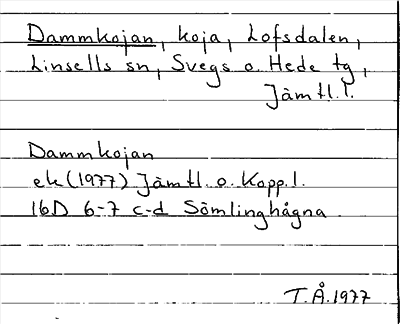 Dammkojan, koja, Lofsdalen,
Linsells sn, Svegs o. Hede tg,
Jämtl.l.
Dammkojan
ek (1977) Jämtl. o. Kopp.l.
16D 6-7 c-d Sömlinghågna.
T.Å. 1977